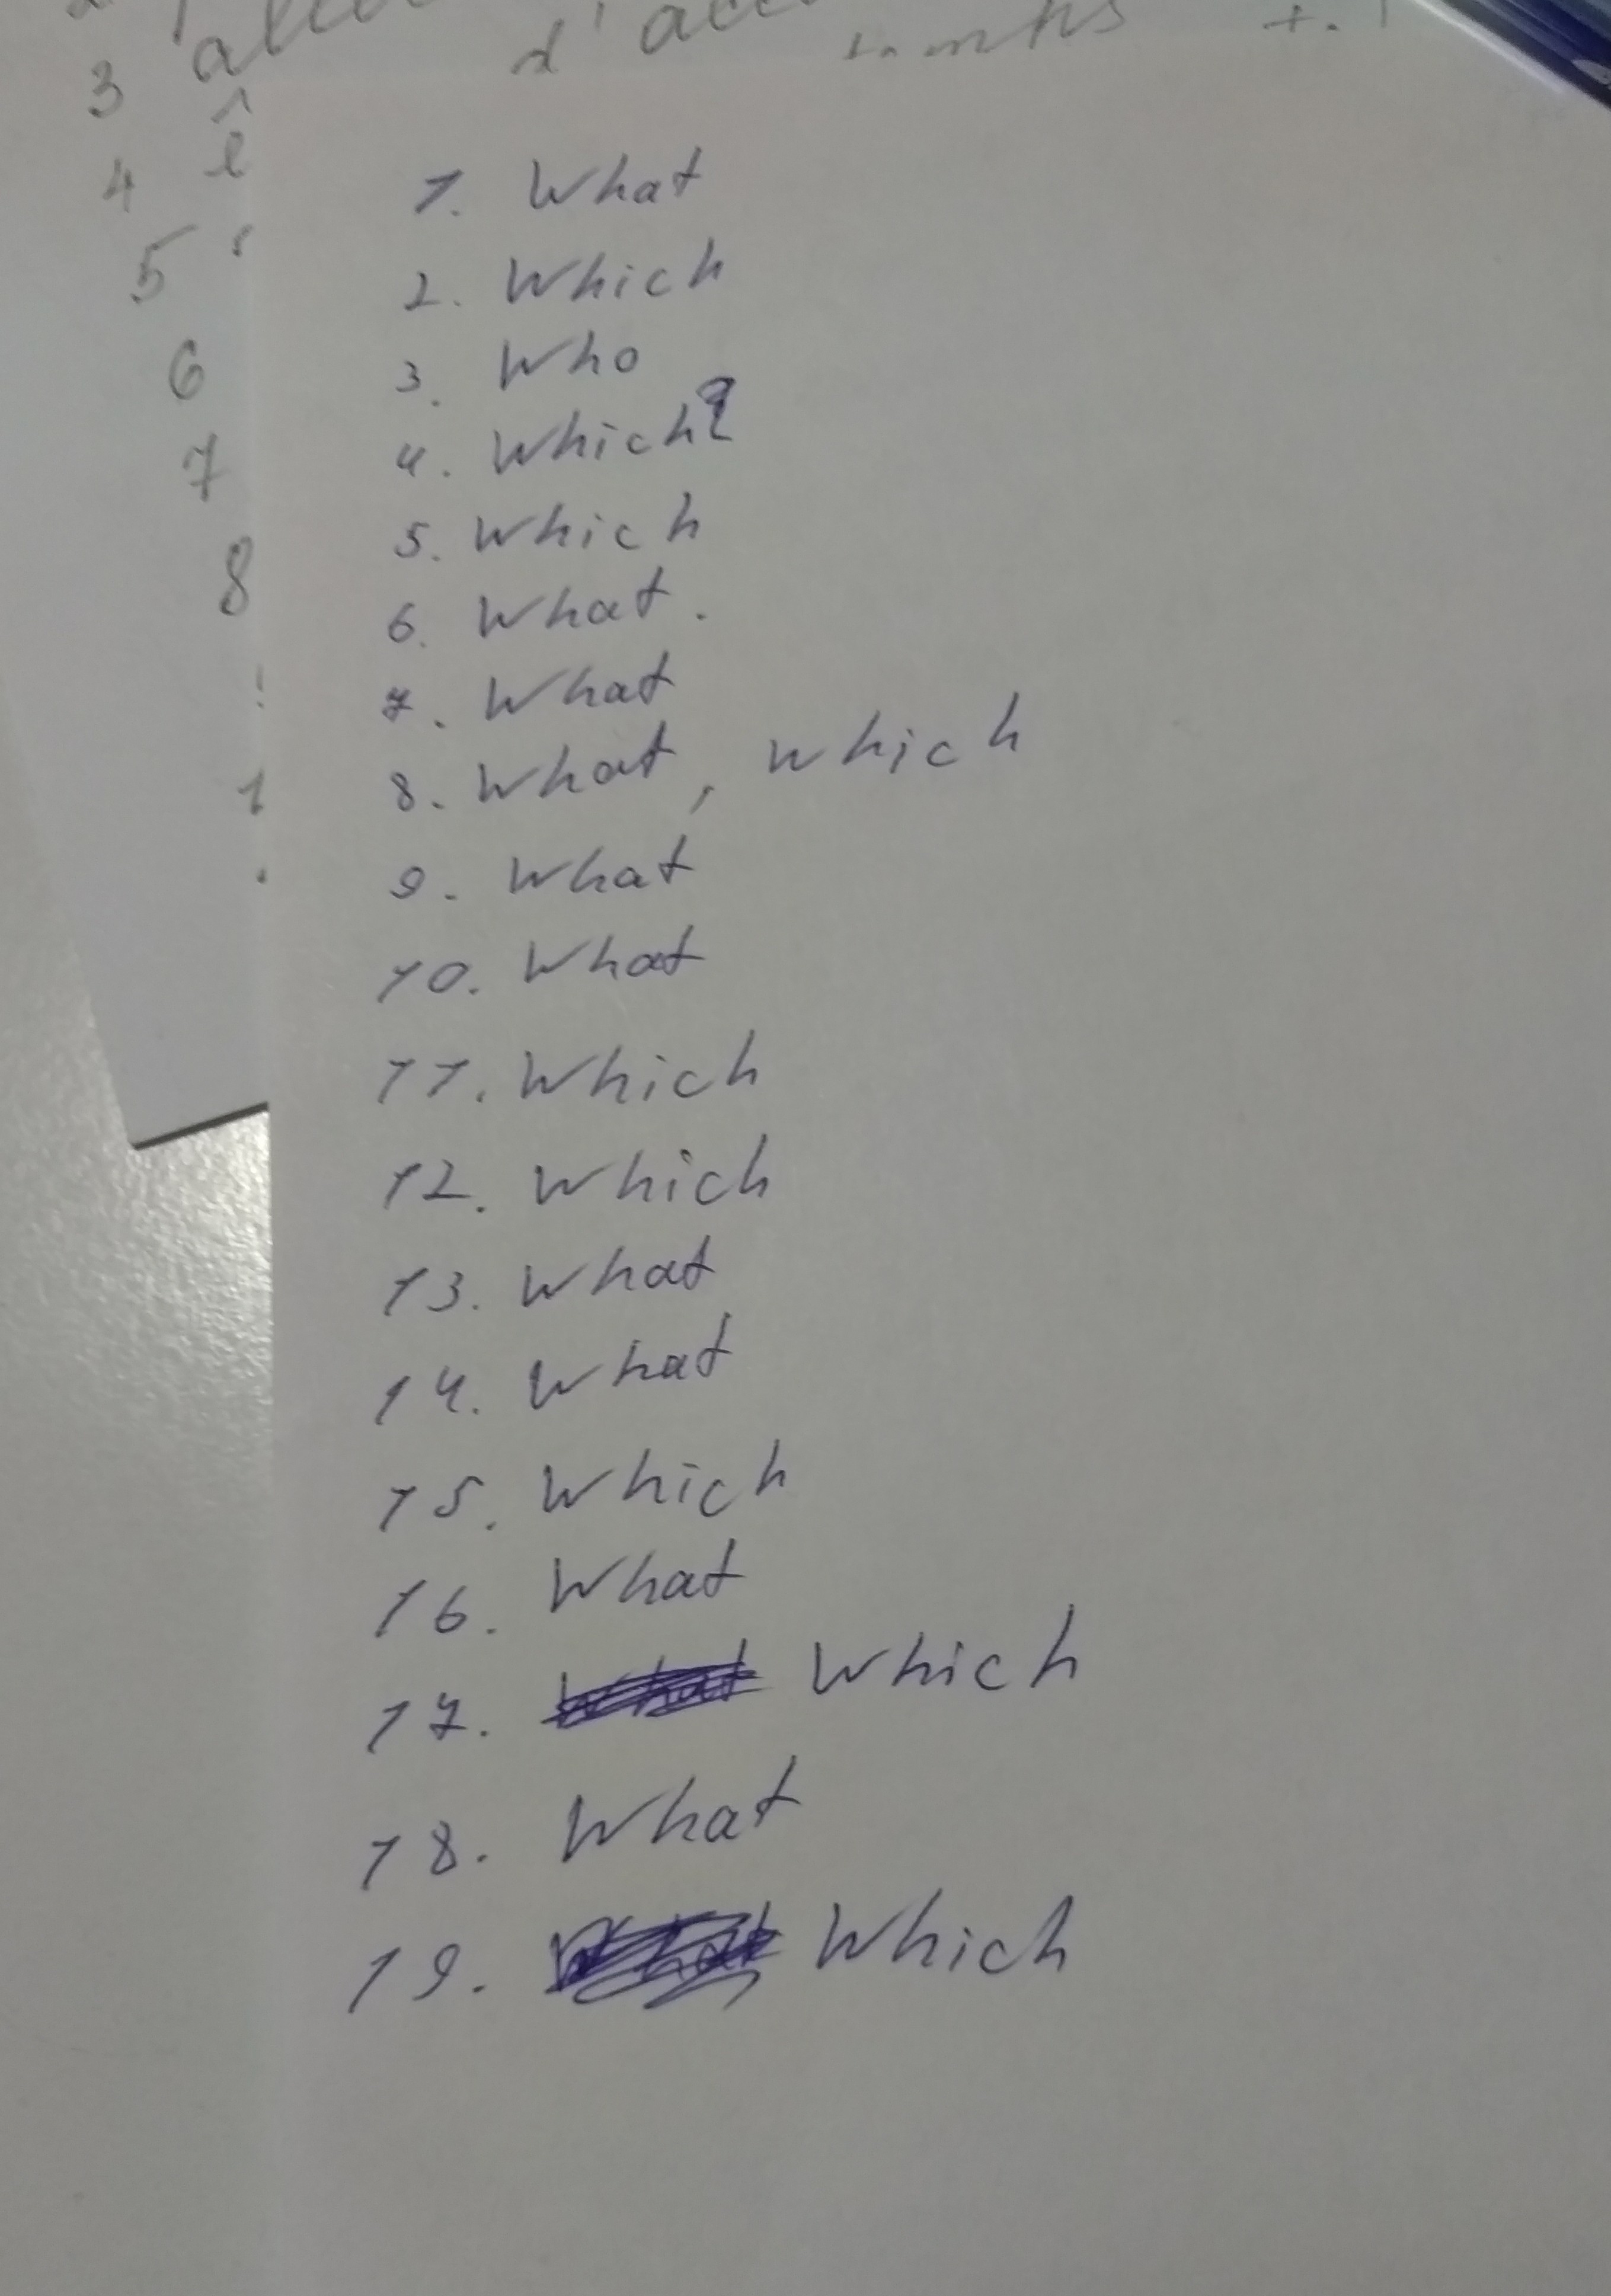 3 
d'
4 ê
5
6
7
8
1
1. What
2. Which
3. Who
4. Which?
5. Which
6. What.
7. What
8. What, which
9. What
10. What
11. Which
12. Which
13. What
14. What
15. Which
16. What
17. What Which
18. What
19. What Which